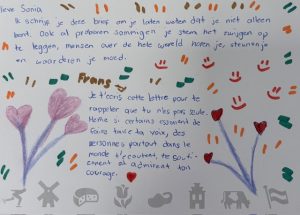 lieve Sonia
Ik schrijf je deze brief om je laten weten dat je niet alleen
bent. Ook al proberen sommigen je stem het zwijgen op
te leggen, mensen over de hele wereld horen je, steunen je
en waarderen je moed.
Frans
Je t'écris cette lettre pour te
rappeler que tu n'es pas seule.
Même si certains essaient de
faire taire ta voix, des
personnes partout dans le
monde t'écoutent, te souti-
ennent et admirent ton
courage.